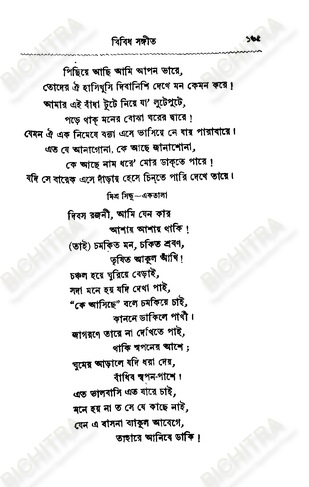 বিবিধ সঙ্গীত ১৬৫
পিছিয়ে আছি আমি আপন ভারে,
তোদের ঐ হাসিখুসি দিবানিশি দেখে মন কেমন করে!
আমার এই বাঁধা টুটে নিয়ে যা' লুটেপুটে,
পড়ে থাক্ মনের বোঝা ঘরের দ্বারে!
যেমন ঐ এক নিমেষে বন্যা এসে ভাসিয়ে নে যায় পারাবারে।
এত যে আনাগোনা, কে আছে জানাশোনা,
কে আছে নাম ধরে' মোর ডাক্‌তে পারে!
যদি সে বারেক এসে দাঁড়ায় হেসে চিন্‌তে পারি দেখে তারে।
মিশ্র সিন্ধু—একতালা
দিবস রজনী, আমি যেন কার
আশায় আশায় থাকি!
(তাই) চমকিত মন, চকিত শ্রবণ,
তৃষিত আকুল আঁখি!
চঞ্চল হয়ে ঘুরিয়ে বেড়াই,
সদা মনে হয় যদি দেখা পাই,
"কে আসিছে" বলে চমকিয়ে চাই,
কাননে ডাকিলে পাখী।
জাগরণে তারে না দেখিতে পাই,
থাকি স্বপনের আশে;
ঘুমের আড়ালে যদি ধরা দেয়,
বাঁধিব স্বপন-পাশে!
এত ভালবাসি এত যারে চাই,
মনে হয় না ত সে যে কাছে নাই,
যেন এ বাসনা ব্যাকুল আবেগে,
তাহারে আনিবে ডাকি!
BICHITRA